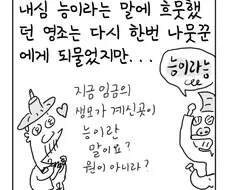 내심 능이라는 말에 흐뭇했
던 영조는 다시 한번 나뭇꾼
에게 되물었지만...
지금 임금의
생모가 계신곳이
능이란
말이요?
원이 아니라?
능이라능